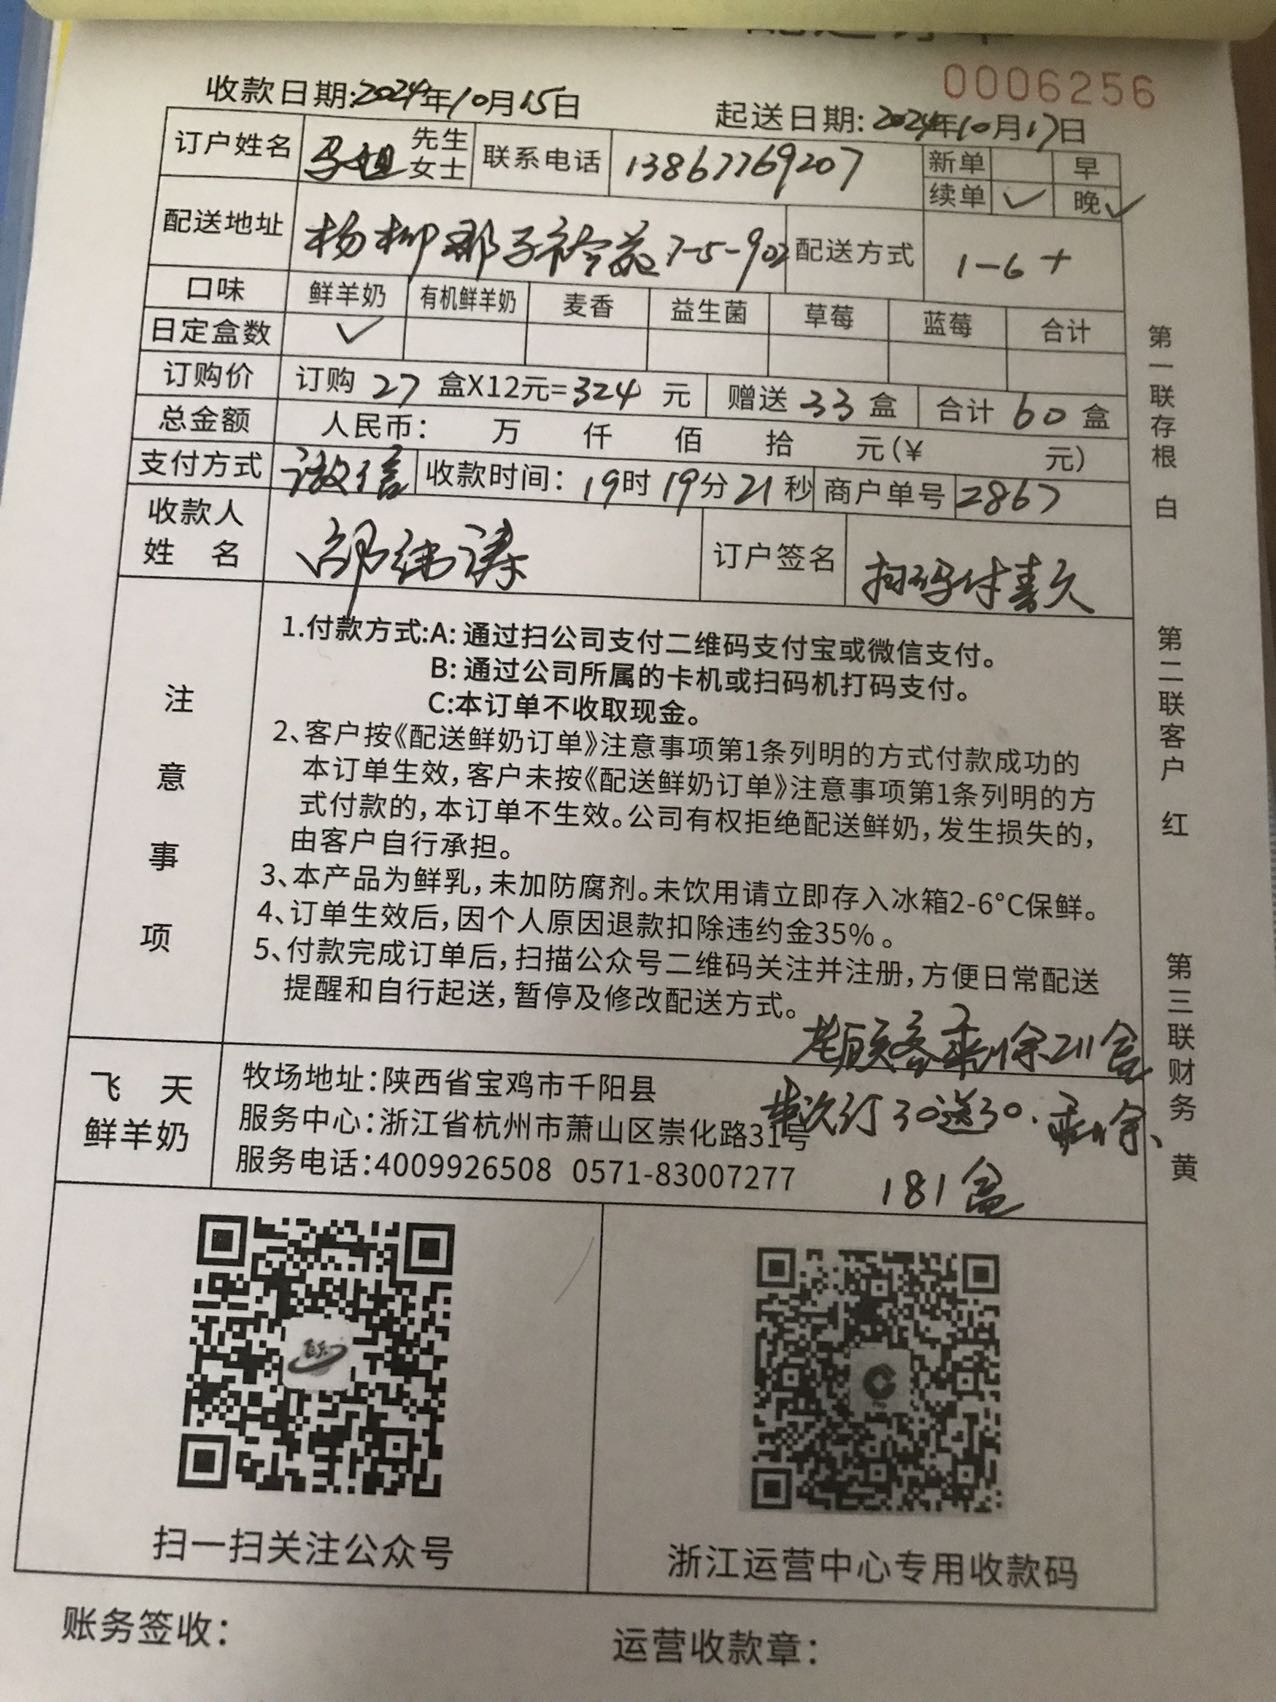 0006256
收款日期:2024年10月15日
起送日期:2024年10月17日
订户姓名 马姐 先生 女士 联系电话 13867769207 新单 早
续单 ✓ 晚 ✓
配送地址 杨柳郡子衿苑7-5-902 配送方式 1-6+
口味 鲜羊奶 有机鲜羊奶 麦香 益生菌 草莓 蓝莓 合计
日定盒数 ✓
订购价 订购 27 盒X12元=324 元 赠送 33 盒 合计 60 盒
总金额 人民币: 万 仟 佰 拾 元(¥ 元)
支付方式 微信 收款时间: 19时19分21秒 商户单号 2867
收款人
姓 名 邵纬涛 订户签名 扫码付喜久
注意事项
1.付款方式:A:通过扫公司支付二维码支付宝或微信支付。
B:通过公司所属的卡机或扫码机打码支付。
C:本订单不收取现金。
2、客户按《配送鲜奶订单》注意事项第1条列明的方式付款成功的
本订单生效,客户未按《配送鲜奶订单》注意事项第1条列明的方
式付款的,本订单不生效。公司有权拒绝配送鲜奶,发生损失的,
由客户自行承担。
3、本产品为鲜乳,未加防腐剂。未饮用请立即存入冰箱2-6°C保鲜。
4、订单生效后,因个人原因退款扣除违约金35%。
5、付款完成订单后,扫描公众号二维码关注并注册,方便日常配送
提醒和自行起送,暂停及修改配送方式。
老顾客剩余211盒
本次订30送30.剩余、
181盒
飞 天
鲜羊奶
牧场地址:陕西省宝鸡市千阳县
服务中心:浙江省杭州市萧山区崇化路31号
服务电话:4009926508 0571-83007277
扫一扫关注公众号
浙江运营中心专用收款码
账务签收:
运营收款章:
第一联存根 白
第二联客户 红
第三联财务 黄